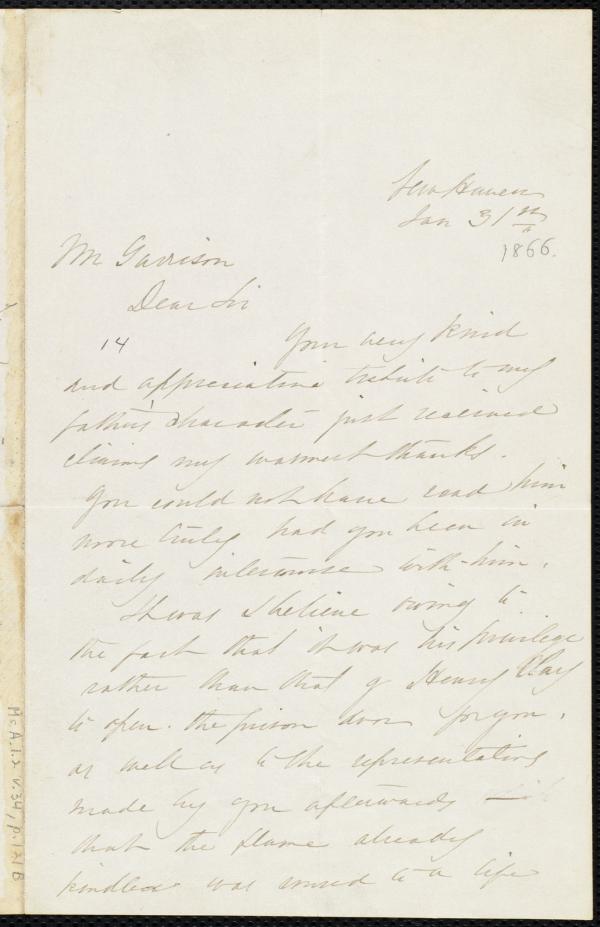 New Haven
Jan 31st
1866.
Mr Garrison
Dear Sir
14
Your very kind
and appreciative tribute to my
father's character just received
claims my warmest thanks.
You could not have read him
more truly had you been in
daily intercourse with him.
It was I believe owing to
the fact that it was his privilege
rather than that of Henry Clay
to open the prison door for you,
as well as to the representations
made by you afterwards
that the flame already
kindled was roused to a life
Ms.A.1.2 v.34, p.121B